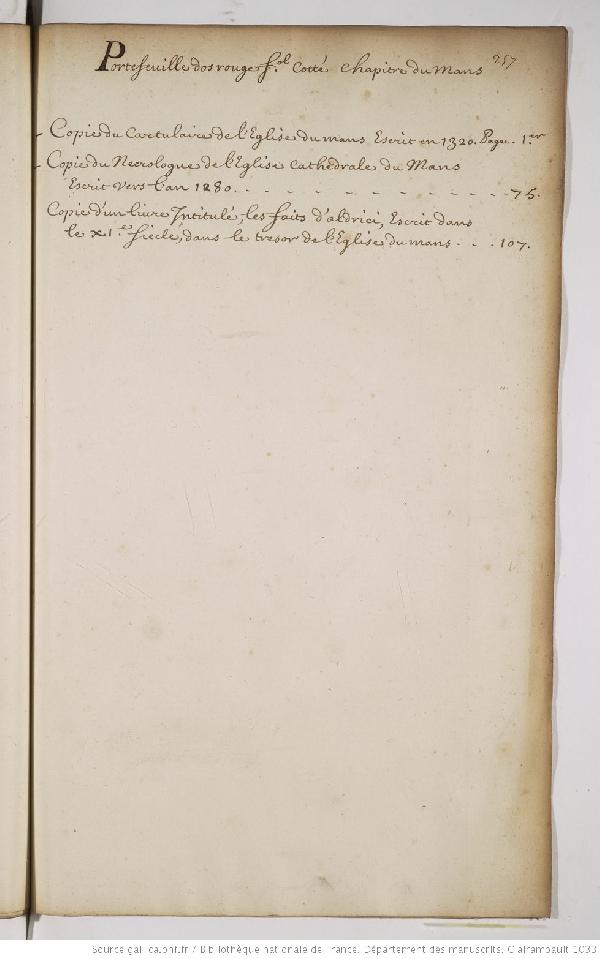 257
Portefeuille dos rouge f.ol Cotté Chapitre du Mans
Copie du Cartulaire de l'Eglise du mans Escrit en 1320. Page.. 1.er
Copie du Necrologue de l'Eglise Cathedrale du Mans
Escrit vers l'an 1280. . . - - - - - - - - - - - - 75.
Copie d'un livre Intitulé, les faits d'aldrici, Escrit dans
le XI.es siécle, dans le tresor de l'Eglise du mans. . . 107.
Source gallica.bnf.fr / Bibliothèque nationale de France. Département des manuscrits. Clairambault 1033